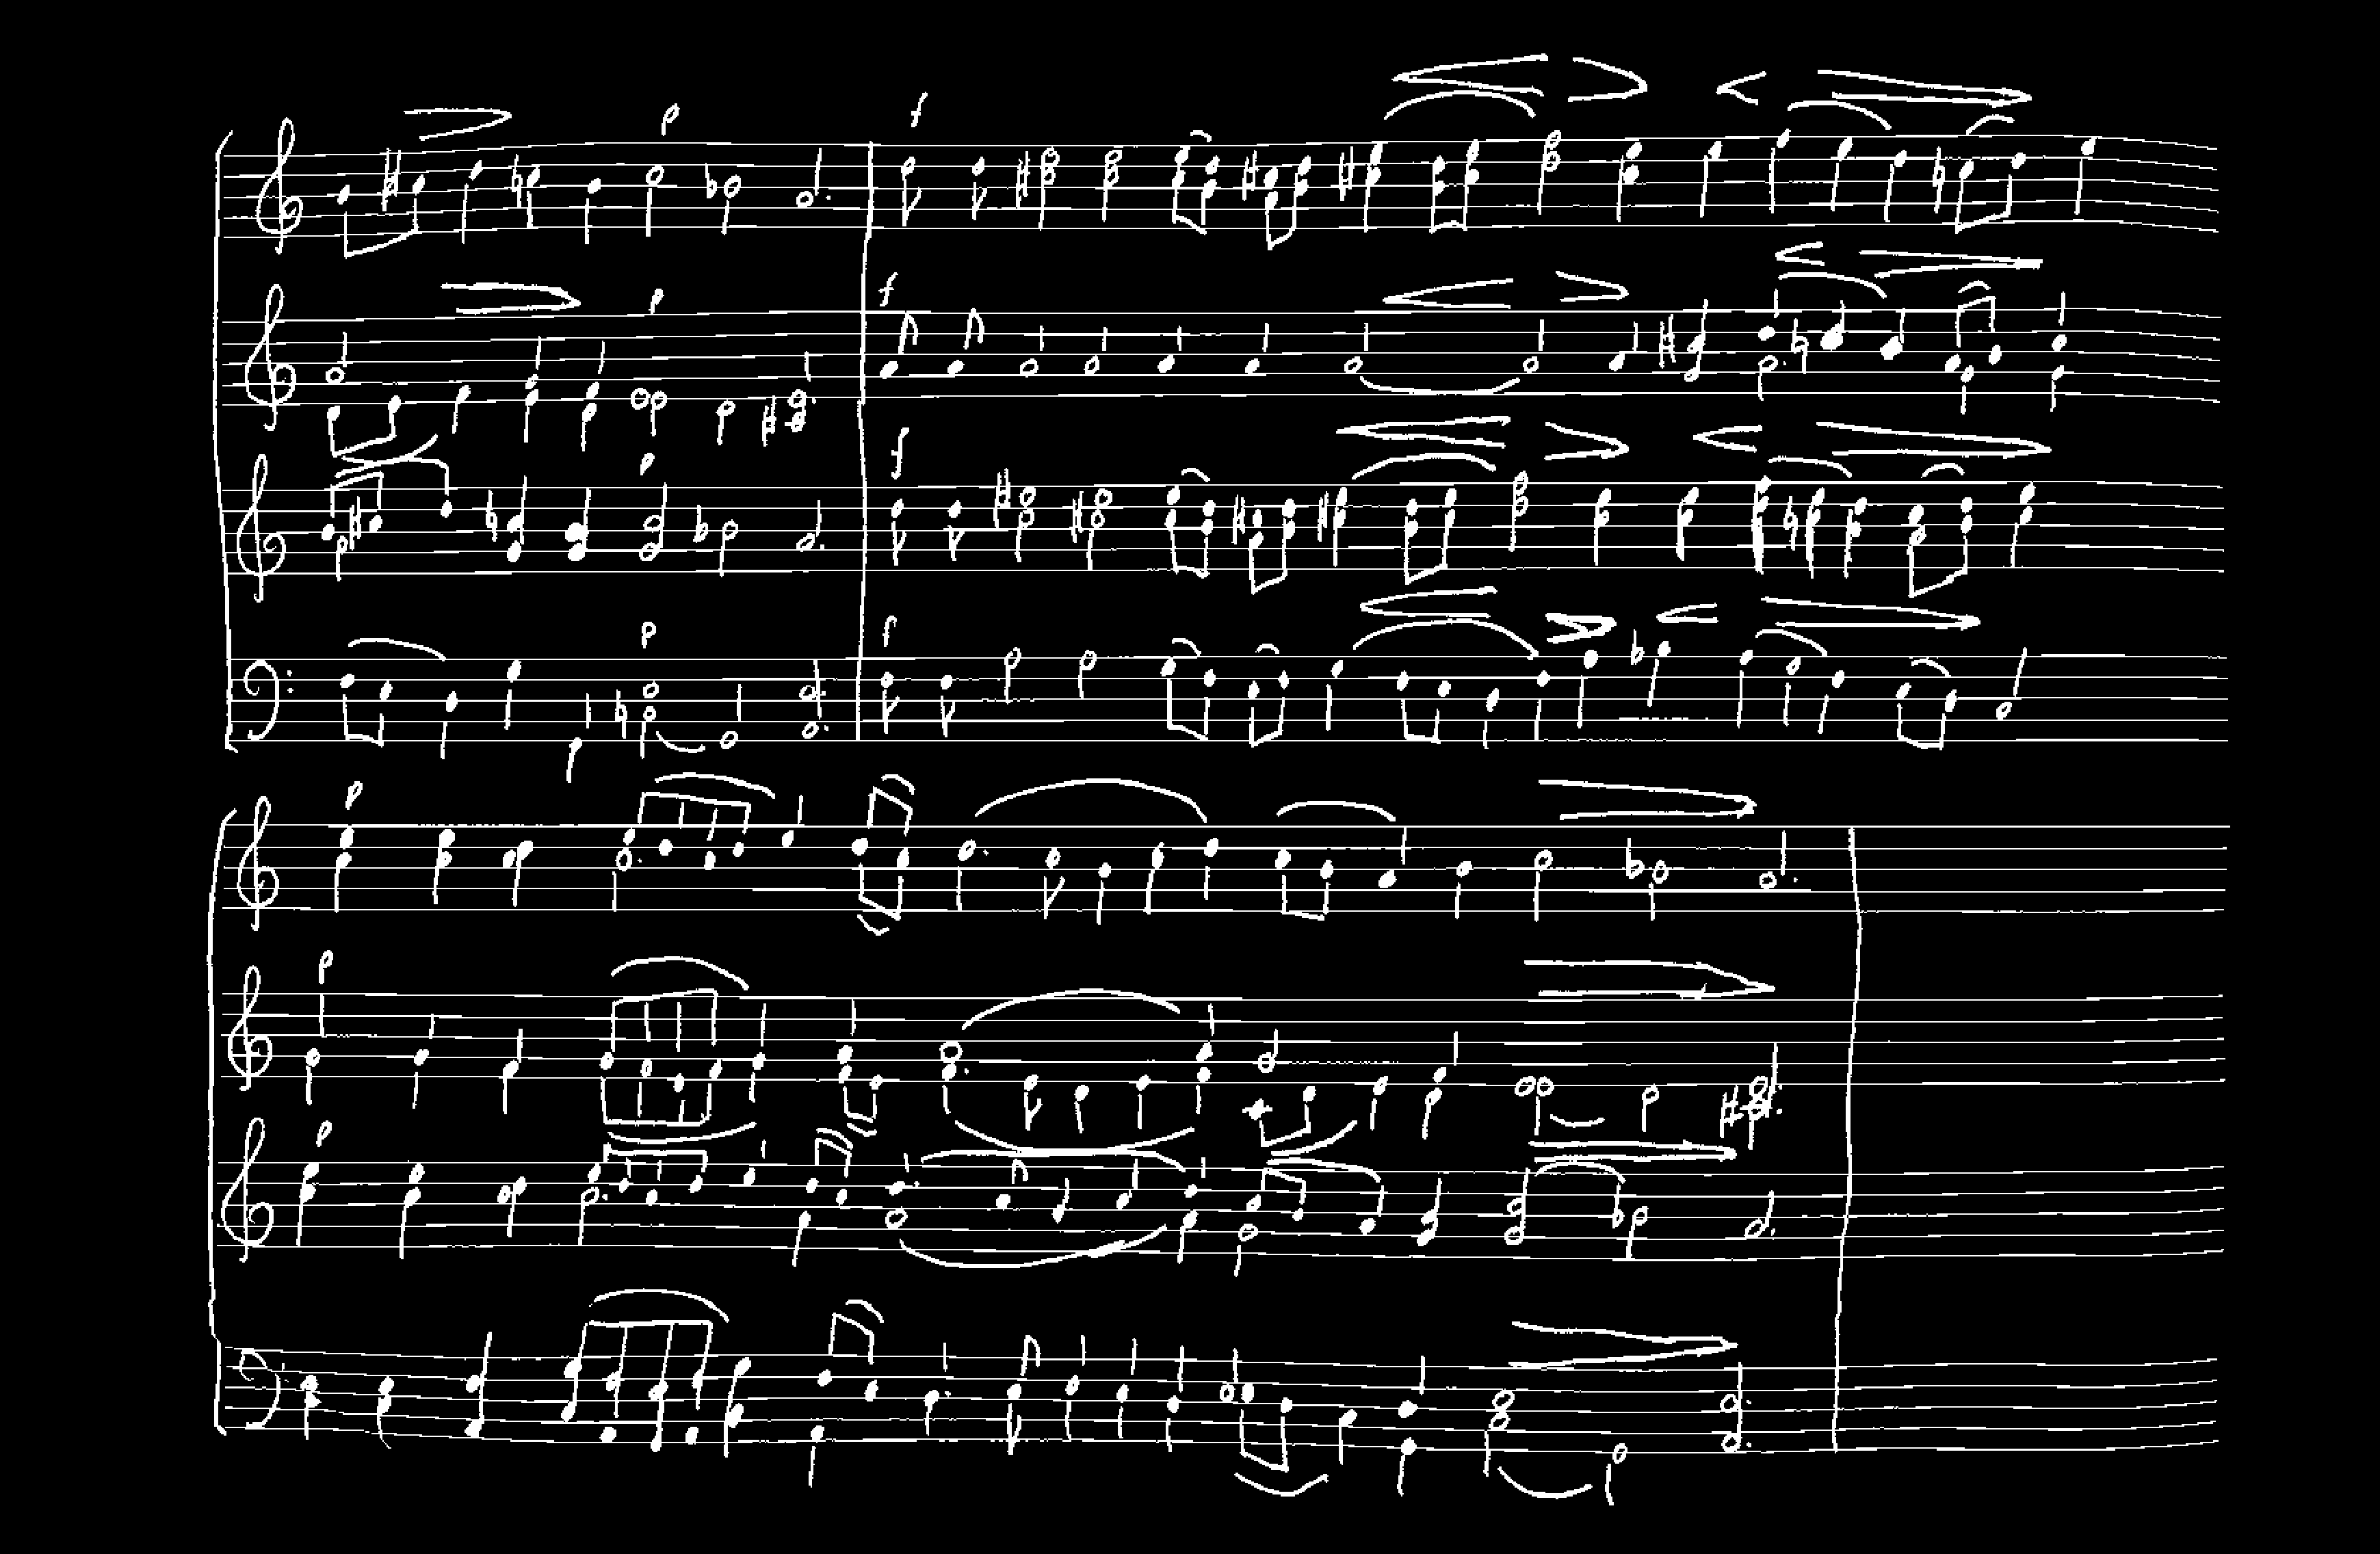 p f
p f
p f
p f
p
p
p